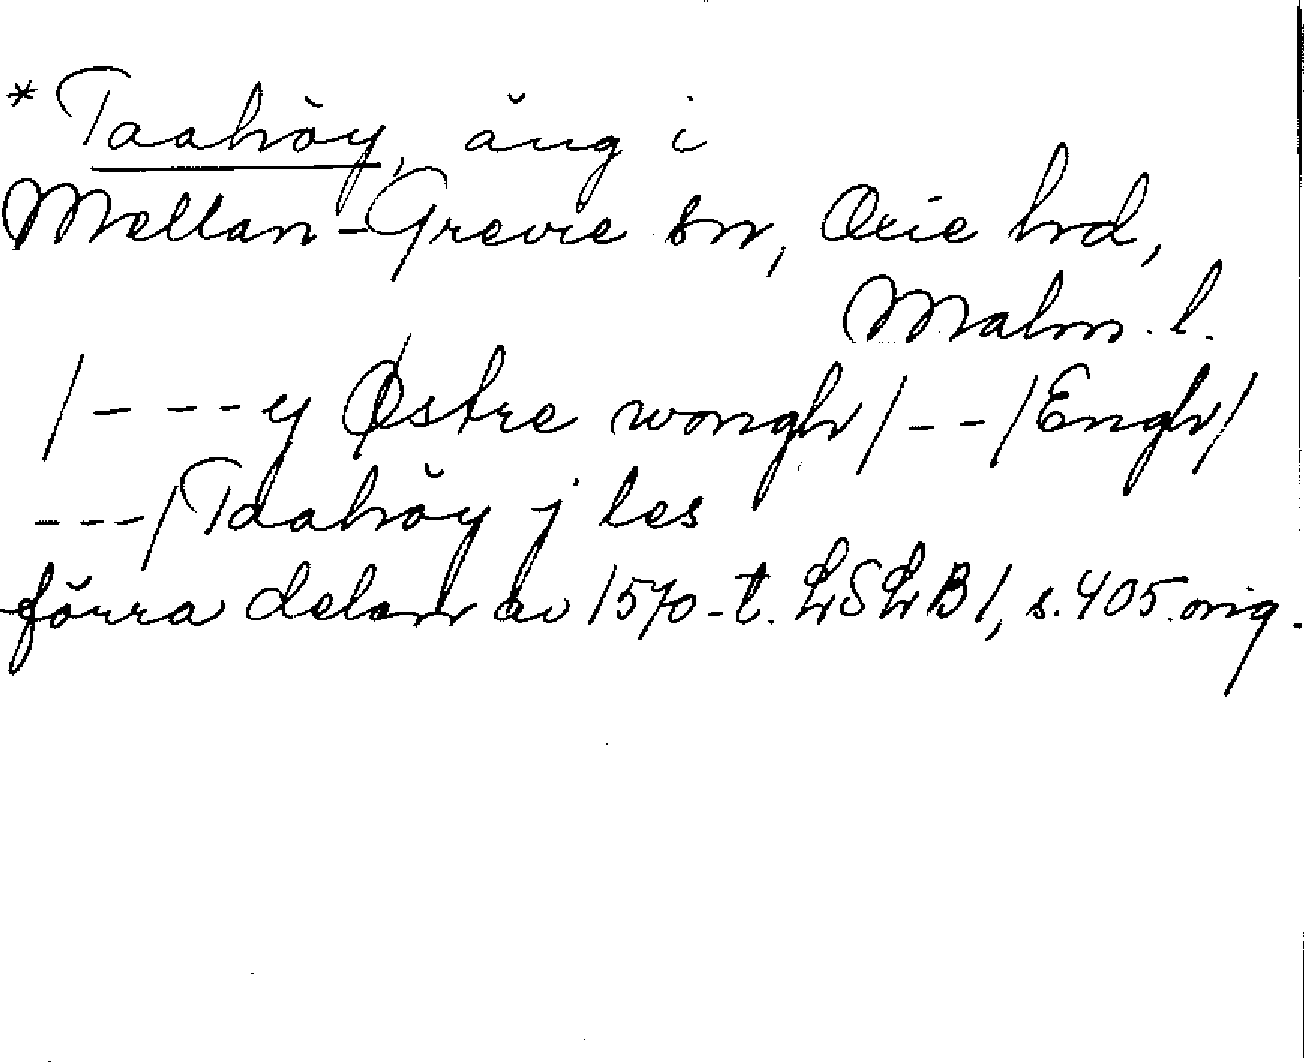 * Taahöy, äng i
Mellan-Grevie sn, Oxie hrd,
Malm. l.
/- --- y Østre wongh/ -- /Engh/
---/Taahöy j les
förra delen av 1570-t. LSLB1, s. 405. orig.